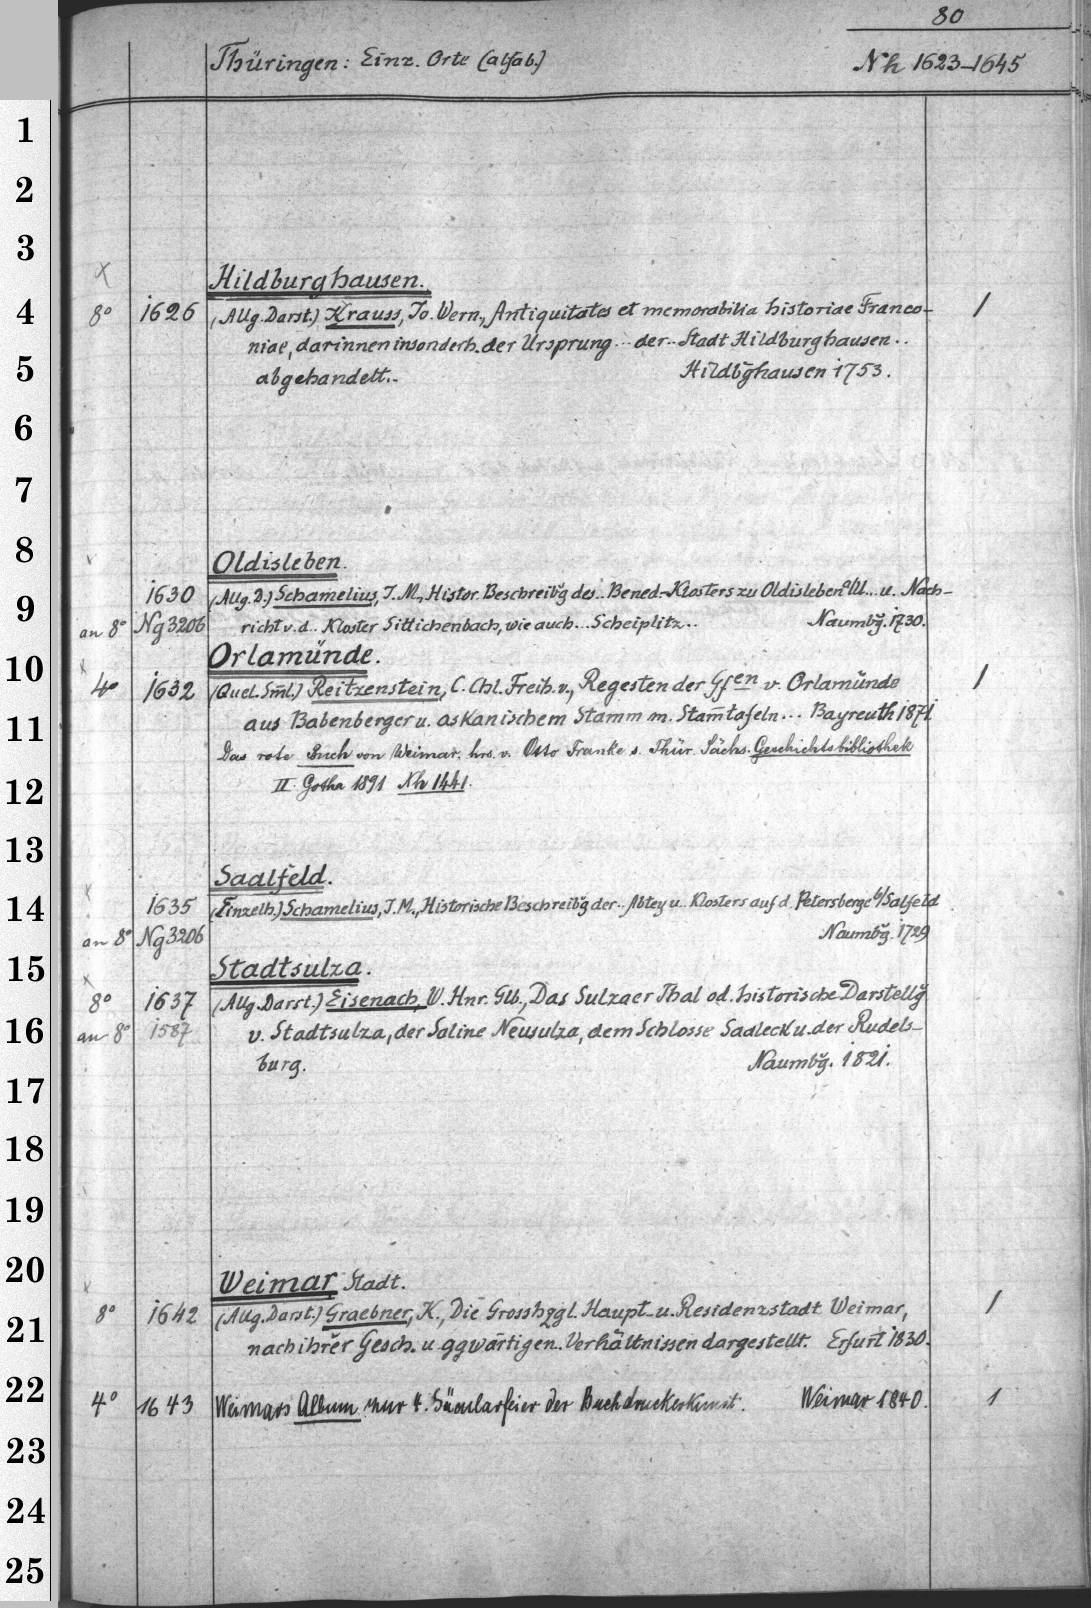 80
Thüringen: Einz. Orte (alfab.) Nh 1623-1645
1
2
3
Hildburghausen.
4 8° 1626 (Allg. Darst.) Krauss, Jo. Wern., Antiquitates et memorabilia historiae Franco- 1
niae, darinnen insonderh. der Ursprung ... der .. Stadt Hildburghausen ..
5 abgehandelt.. Hildbg̃hausen 1753.
6
7
8 Oldisleben.
1630 (Allg. D.) Schamelius, J. M., Histor. Beschreibg̃ des .. Bened.-Klosters zu Oldisleben a/U... u. Nach-
9 an 8° Ng 3206 richt v. d.. Kloster Sittichenbach, wie auch... Scheiplitz.. Naumbg̃. 1730.
10 Orlamünde.
4° 1632 (Quel. Sml.) Reitzenstein, C. Chl. Freih. v., Regesten der Gfen v. Orlamünde 1
11 aus Babenberger u. askanischem Stamm m. Stam̄tafeln... Bayreuth 1871.
Das rote Buch von Weimar. hrs. v. Otto Franke s. Thür. Sächs. Geschichtsbibliothek
12 II. Gotha 1891 Nh 1441.
13
Saalfeld.
14 1635 (Einzelh.) Schamelius, J. M., Historische Beschreibg̃ der .. Abtey u. Klosters auf d. Petersberge b/Salfeld
an 8° Ng 3206 Naumbg̃. 1729
15 Stadtsulza.
8° 1637 (Allg. Darst.) Eisenach, W. Hnr. Glb., Das Sulzaer Thal od. historische Darstellg̃
16 an 8° 1587 v. Stadtsulza, der Saline Neusulza, dem Schlosse Saaleck u. der Rudels-
burg. Naumbg̃. 1821.
17
18
19
20 Weimar Stadt.
8° 1642 (Allg. Darst.) Graebner, K., Die Grosshzgl. Haupt- u. Residenzstadt Weimar, 1
21 nach ihrer Gesch. u. ggwärtigen. Verhältnissen dargestellt. Erfurt 1830.
22 4° 1643 Weimars Album zur 4. Säcularfeier der Buchdruckerkunst. Weimar 1840. 1
23
24
25